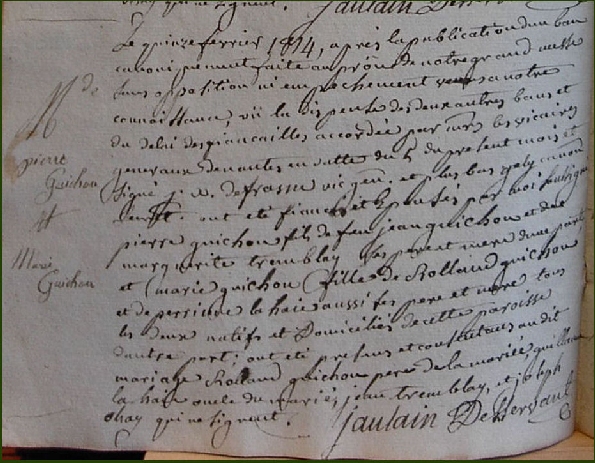 Jaulain De
Le quinze fevrier 1774, après la publication d'un ban
canoniquement faite au prône de notre grand messe
sans opposition ni empechement venu a notre
connaissance, vü la dispense des deux autres bans et
du delai des fiancailles accordée par mrs les vicaires
generaux de nantes en datte du 5 du present mois et
signé j. n. defrasne vic. gen. et plus bas
ont été fiancés et Epousés par moi soussigné
pierre guichon fils de feu jean guichon et de
marguerite tremblay ses pere et mere d'une part
et marie guichon fille de Rolland guichon
et de perrinne la haie aussi ses pere et mere tous
les deux natifs et Domiciliés de cette paroisse
d'autre part; ont eté presens et consentans audit
mariage Rolland guichon pere de la mariée, guillaume
la haie oncle du marié, jean tremblay, et joseph
qui ne signent.
Jaulain
Mde
pierre
Guichon
et
Marie
Guichon